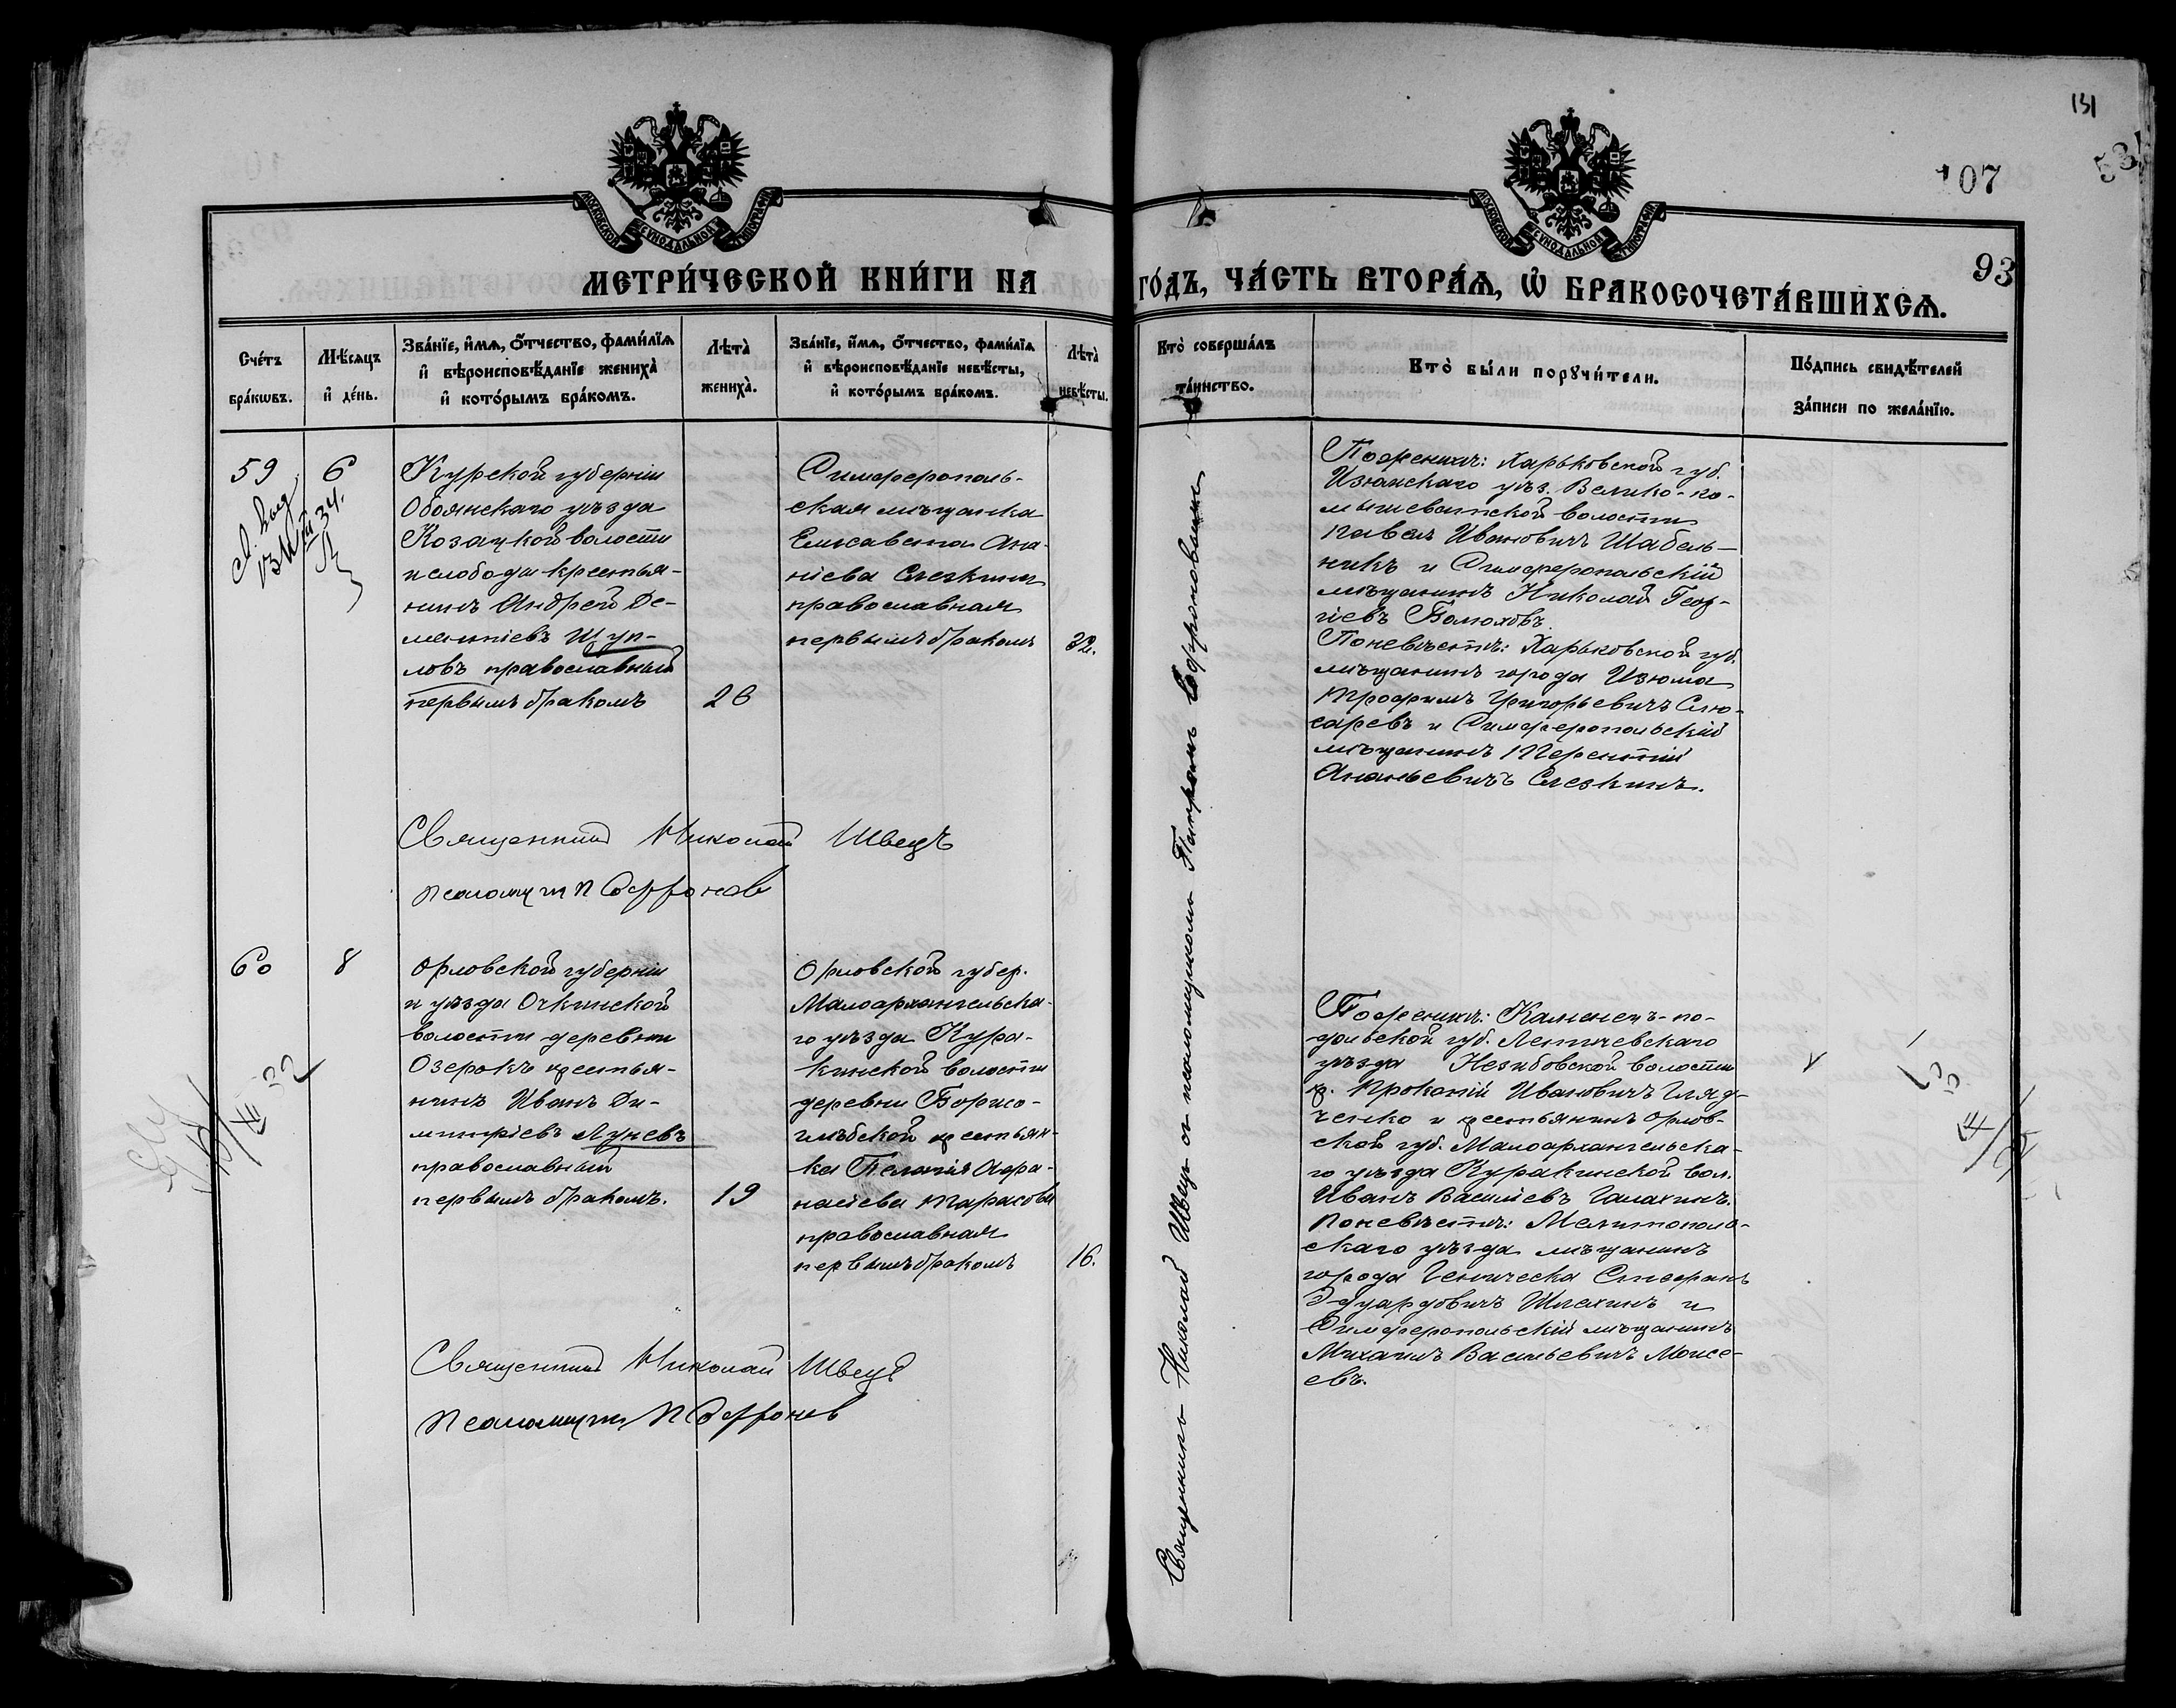 131
531
107
93
МОСКОВСКОЙ СѴНОДАЛЬНОЙ ТИПОГРАФІИ
МОСКОВСКОЙ СѴНОДАЛЬНОЙ ТИПОГРАФІИ
МЕТРИ́ЧЕСКОЙ КНИ́ГИ НА ГО́ДЪ, ЧА́СТЬ ВТОРА́Ѧ, Ѿ БРАКОСОЧЕТА́ВШИХСѦ.
Сче́тъ бра́кѡвъ.
Мѣ́сѧцъ и де́нь.
Зва́нїе, и́мѧ, о́тчество, фами́лїѧ и вѣроисповѣ́данїе жениха̀ и кото́рымъ бра́комъ.
Лѣта̀ жениха̀.
Зва́нїе, и́мѧ, о́тчество, фами́лїѧ и вѣроисповѣ́данїе невѣ́сты, и кото́рымъ бра́комъ.
Лѣта̀ невѣ́сты.
Кто̀ соверша́лъ та́инство.
Кто̀ бы́ли порꙋчи́тели.
По́дпись свидѣ́телей за́писи по жела́нїю.
59
6
Курской губерніи
Обоянскаго уѣзда
Козацкой волости
и слободы крестья-
нинъ Андрей Де-
ментіевъ Щуп-
ловъ православный
первымъ бракомъ
26
Симферополь-
ская мѣщанка
Елисавета Ана-
ніева Слезкина
православная
первымъ бракомъ
32.
Священникъ Николай Швецъ съ псаломщикомъ Петромъ Софроновымъ
По женихѣ: Харьковской губ.
Изюмскаго уѣз. Велико-ко-
мышевахской волости
Павелъ Ивановичъ Шабель-
никъ и Симферопольскій
мѣщанинъ Николай Геор-
гіевъ Болоховъ.
По невѣстѣ: Харьковской губ.
мѣщанинъ города Изюма
Трофимъ Григорьевичъ Слю-
саревъ и Симферопольскій
мѣщанинъ Терентій
Ананьевичъ Слезкинъ.
Священник Николай Швецъ
Псаломщик П Софронов
60
8
Орловской губерніи
и уѣзда Очкинской
волости деревни
Озерокъ крестья-
нинъ Иванъ Ди-
митріевъ Луневъ
православный
первымъ бракомъ.
19
Орловской губер.
Малоархангельска-
го уѣзда Кура-
кинской волости
деревни Борисо-
глѣбской крестьян-
ка Пелагія Афа-
насіева Тарасова
православная
первымъ бракомъ
16.
По женихѣ: Каменецъ-по-
дольской губ. Летичевскаго
уѣзда волости
кр. Прокопій Ивановичъ Гляд-
ченко и крестьянинъ Орлов-
ской губ. Малоархангельска-
го уѣзда Куракинской вол.
Иванъ Василіевъ Галахинъ.
По невѣстѣ: Мелитополь-
скаго уѣзда мѣщанинъ
города Геническа Стефанъ
Эдуардовичъ Шлехинъ и
Симферопольскій мѣщанинъ
Михаилъ Васильевичъ Моисе-
евъ.
Священник Николай Швецъ
Псаломщик П Софронов